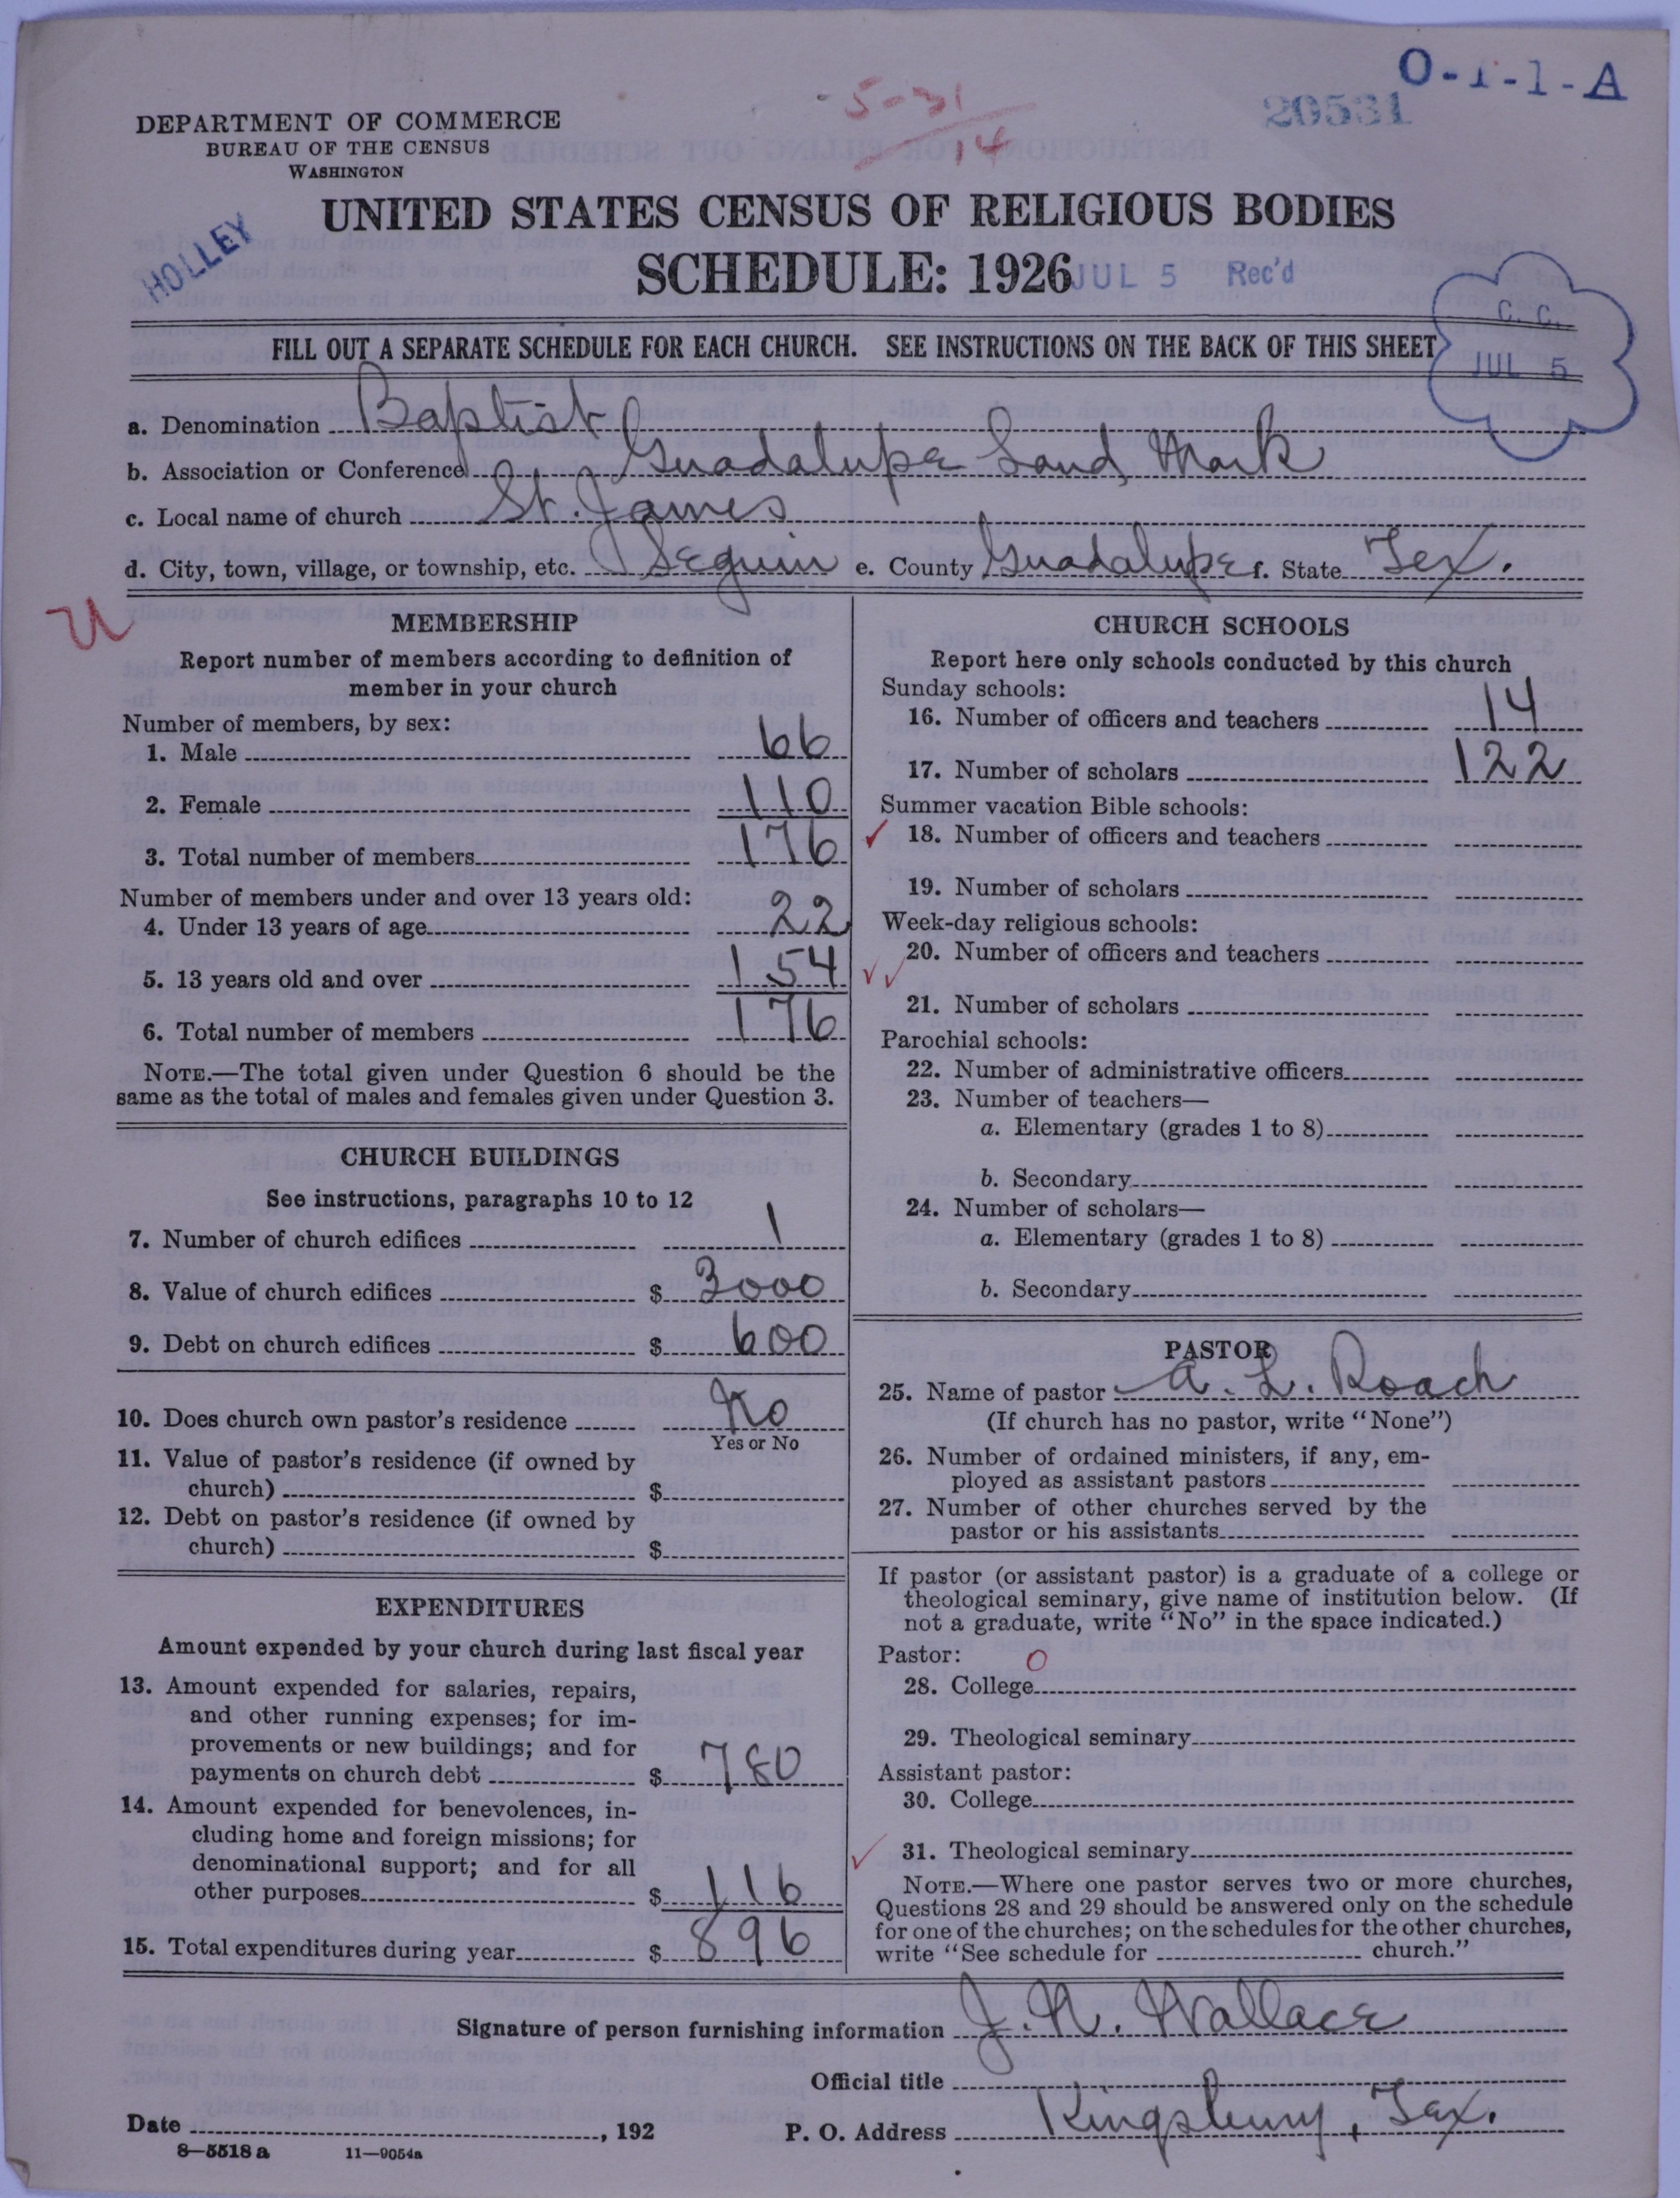 O-1-1-A
20531
5-31
14
DEPARTMENT OF COMMERCE
BUREAU OF THE CENSUS
WASHINGTON
UNITED STATES CENSUS OF RELIGIOUS BODIES
HOLLEY
SCHEDULE: 1926 JUL 5 Rec'd
C. C.
JUL 5
FILL OUT A SEPARATE SCHEDULE FOR EACH CHURCH. SEE INSTRUCTIONS ON THE BACK OF THIS SHEET
a. Denomination Baptist
b. Association or Conference Guadalupe Land Mark
c. Local name of church St. James
d. City, town, village, or township, etc. Seguin e. County Guadalupe f. State Tex.
U
MEMBERSHIP
Report number of members according to definition of
member in your church
Number of members, by sex:
1. Male 66
2. Female 110
3. Total number of members 176
Number of members under and over 13 years old:
4. Under 13 years of age 22
5. 13 years old and over 154
6. Total number of members 176
NOTE.—The total given under Question 6 should be the
same as the total of males and females given under Question 3.
CHURCH BUILDINGS
See instructions, paragraphs 10 to 12
7. Number of church edifices 1
8. Value of church edifices $ 3000
9. Debt on church edifices $ 600
10. Does church own pastor's residence No
Yes or No
11. Value of pastor's residence (if owned by
church) $
12. Debt on pastor's residence (if owned by
church) $
EXPENDITURES
Amount expended by your church during last fiscal year
13. Amount expended for salaries, repairs,
and other running expenses; for im-
provements or new buildings; and for
payments on church debt $ 780
14. Amount expended for benevolences, in-
cluding home and foreign missions; for
denominational support; and for all
other purposes $ 116
15. Total expenditures during year $ 896
CHURCH SCHOOLS
Report here only schools conducted by this church
Sunday schools:
16. Number of officers and teachers 14
17. Number of scholars 122
Summer vacation Bible schools:
✓ 18. Number of officers and teachers
19. Number of scholars
Week-day religious schools:
✓✓ 20. Number of officers and teachers
21. Number of scholars
Parochial schools:
22. Number of administrative officers
23. Number of teachers—
a. Elementary (grades 1 to 8)
b. Secondary
24. Number of scholars—
a. Elementary (grades 1 to 8)
b. Secondary
PASTOR
25. Name of pastor A. L. Roach
(If church has no pastor, write "None")
26. Number of ordained ministers, if any, em-
ployed as assistant pastors
27. Number of other churches served by the
pastor or his assistants
If pastor (or assistant pastor) is a graduate of a college or
theological seminary, give name of institution below. (If
not a graduate, write "No" in the space indicated.)
Pastor: 0
28. College
29. Theological seminary
Assistant pastor:
30. College
✓ 31. Theological seminary
NOTE.—Where one pastor serves two or more churches,
Questions 28 and 29 should be answered only on the schedule
for one of the churches; on the schedules for the other churches,
write "See schedule for church."
Signature of person furnishing information J. N. Wallace
Official title
Date , 192 P. O. Address Kingsbury, Tex.
8—5518 a 11—9054a